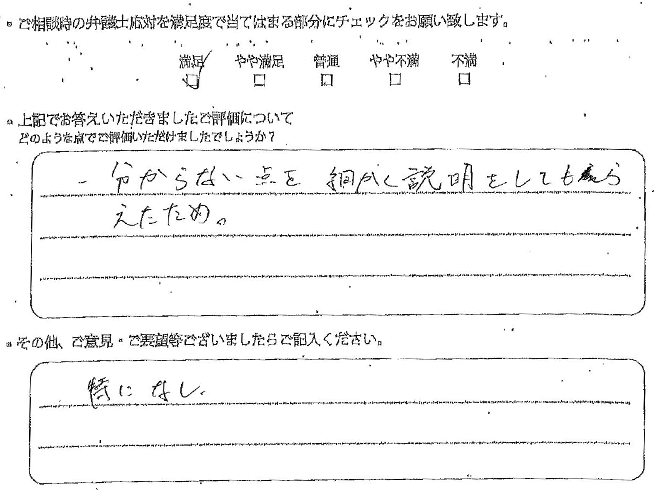 。ご相談時の弁護士応対を満足度で当てはまる部分にチェックをお願い致します。
満足 やや満足 普通 やや不満 不満
。上記でお答えいただきましたご評価について
どのような点でご評価いただけましたでしょうか?
- 分からない点を 細かく説明をしてもら
えたため。
。その他、ご意見・ご要望等ございましたらご記入ください。
特になし.